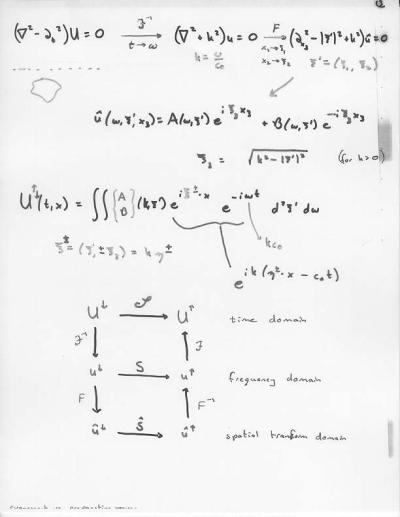 (∇² − ∂ₜ²)U = 0 —ℱ⁻¹, t→ω→ (∇² + k²)u = 0 —F, x₁→ξ₁, x₂→ξ₂→ (∂ₓ₃² − |ξ'|² + k²)û = 0
k = ω/c₀ ξ' = (ξ₁, ξ₂)
û(ω, ξ', x₃) = A(ω, ξ') e^{iξ₃x₃} + B(ω, ξ') e^{−iξ₃x₃}
ξ₃ = √(k² − |ξ'|²) (for k>0)
U^{↑↓}(t,x) = ∬ {A B} (k, ξ') e^{iξ^±·x} e^{−iωt} d²ξ' dω
ξ^± = (ξ', ±ξ₃) = k η^± kc₀
e^{ik(η^±·x − c₀t)}
U↓ —𝒮→ U↑ time domain
ℱ⁻¹ ℱ
u↓ —S→ u↑ frequency domain
F F⁻¹
û↓ —Ŝ→ û↑ spatial transform domain